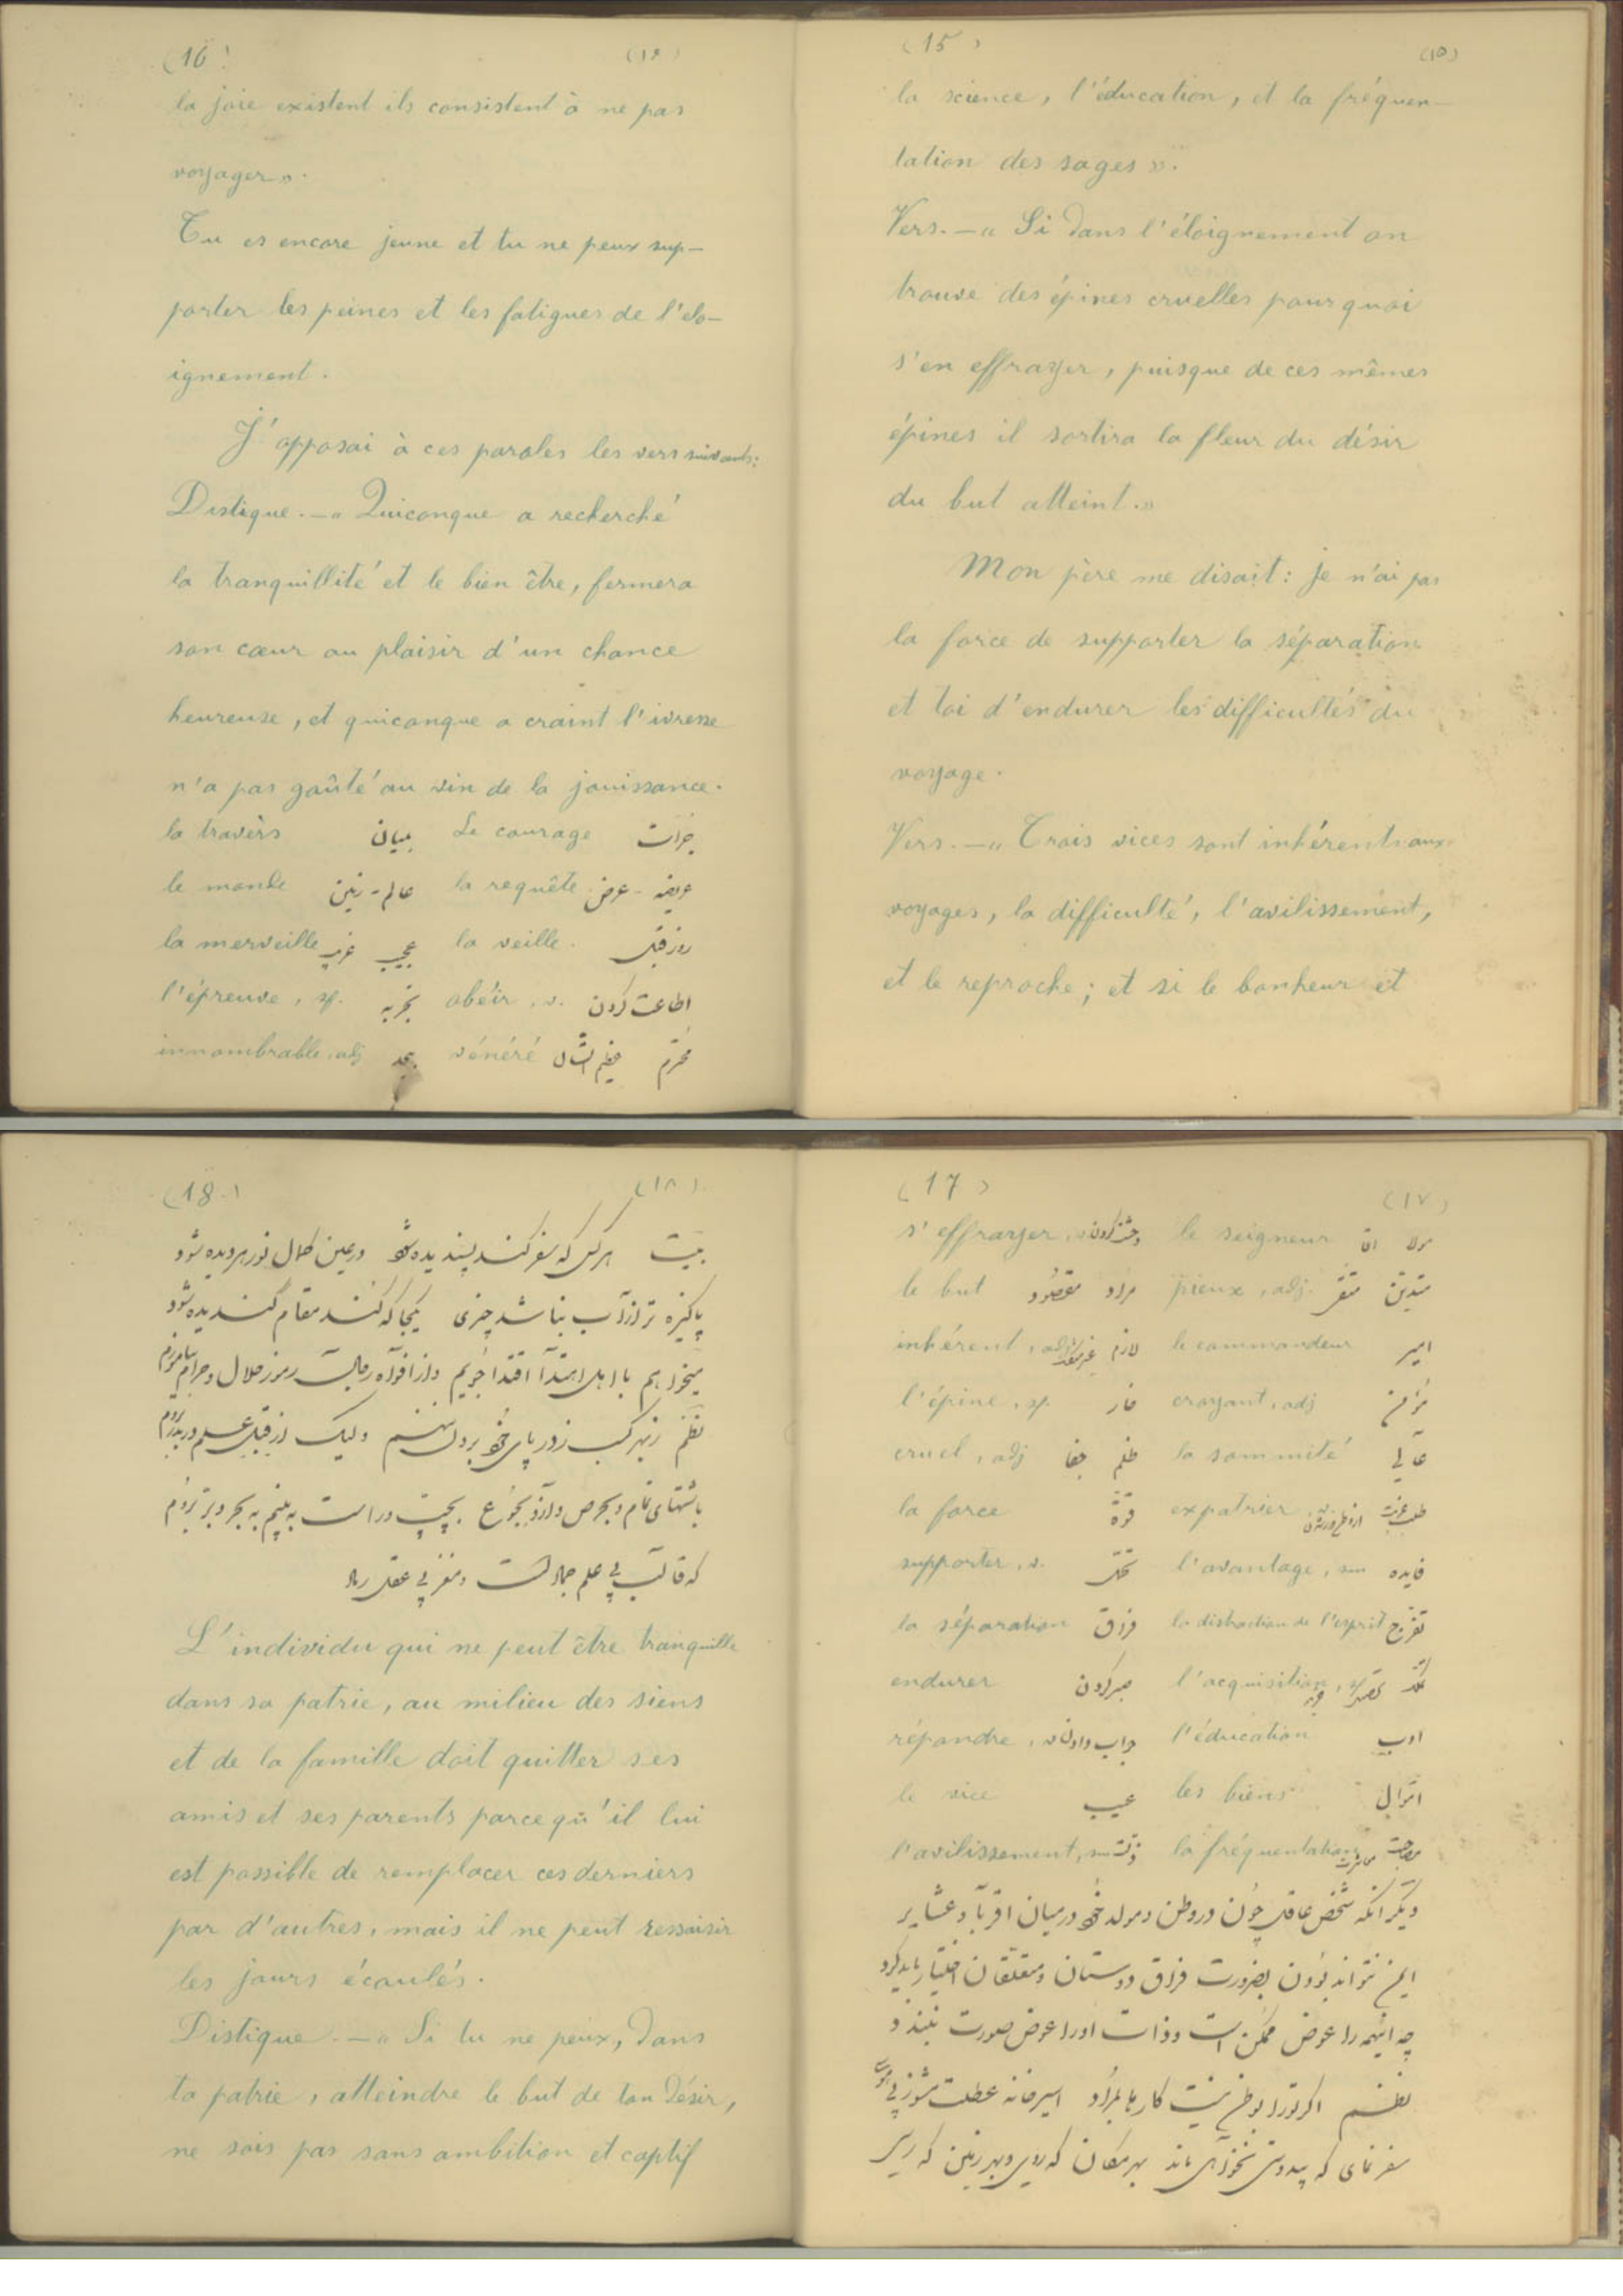 (15) (١٥)
la science, l'éducation, et la fréquen-
tation des sages ».
Vers. — « Si dans l'éloignement on
trouve des épines cruelles pourquoi
s'en effrayer, puisque de ces mêmes
épines il sortira la fleur du désir
du but atteint. »
Mon père me disait : je n'ai pas
la force de supporter la séparation
et toi d'endurer les difficultés du
voyage.
Vers. — « Trois vices sont inhérents aux
voyages, la difficulté, l'avilissement,
et le reproche ; et si le bonheur et
(16) (١٦)
la joie existent ils consistent à ne pas
voyager ».
Tu es encore jeune et tu ne peux sup-
porter les peines et les fatigues de l'élo-
ignement.
J'opposai à ces paroles les vers suivants :
Distique. — « Quiconque a recherché
la tranquillité et le bien être, fermera
son cœur au plaisir d'un chance
heureuse, et quiconque a craint l'ivresse
n'a pas goûté au vin de la jouissance.
la travèrs میان Le courage جرأت
le monde عالم - زمین la requête عریضه - عرض
la merveille عجیب غریب la veille روز قبل
l'épreuve, sf. تجربه obéir, v. اطاعت کردن
innombrable, adj بیحد vénéré عظیم الشأن محترم
(17) (١٧)
s'effrayer, وحشت کردن le seigneur
le but مراد مقصود pieux, adj. متدین
inhérent, adj لازم le commandeur امیر
l'épine, sf. خار croyant, adj مؤمن
cruel, adj ظلم جفا la sommité عالی
la force قوة expatrier
supporter, v. تحمل l'avantage, sm فایده
la séparation فراق la distraction de l'esprit تفرج
endurer صبر کردن l'acquisition, sf
répondre, جواب دادن l'éducation ادب
le vice عیب les biens اموال
l'avilissement, sm ذلت la fréquentation مصاحبت
دیگر آنکه شخص عاقل چون در وطن و مولد خود در میان اقربا و عشایر
ایمن نتواند بودن بضرورت فراق دوستان و متعلقان اختیار باید کرد
چه اینهمه را عوض ممکن است و ذات او را عوض صورت نبندد
نظم اگر ترا بوطن نیست کارها بمراد اسیر خانه عطلت مشو ز بی
سفر نمای که بیدوست نخواهی ماند بهر مکان که روی و بهر زمین که رسی
(18) (١٨)
بیت هر کس که سفر کند پسندیده شود در عین کمال نور هر دیده شود
پاکیزه تر از آب نباشد چیزی یکجا که کند مقام گندیده شود
میخواهم با اهل اهتدا اقتدا جویم و از افواه رجال رموز حلال و حرام بیاموزم
نظم ز بهر کسب زر پای خود برون ننهم ولیک از قبل علم در بدر بروم
باشتهای تمام و بحرص و آز و بجوع بچپ و راست به بینم به بحر و بر بروم
که قالب بی علم جماد است و مغز بی عقل رماد
L'individu qui ne peut être tranquille
dans sa patrie, au milieu des siens
et de la famille doit quitter ses
amis et ses parents parce qu'il lui
est possible de remplacer ces derniers
par d'autres, mais il ne peut ressaisir
les jours écoulés.
Distique. — « Si tu ne peux, dans
ta patrie, atteindre le but de ton désir,
ne sois pas sans ambition et captif